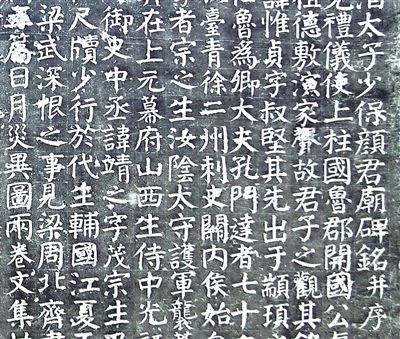 太子少保顏君廟碑銘并序
禮儀使上柱國魯郡開國公
祖德敷演家聲故君子之觀其銘
諱惟貞字叔堅其先出于顓頊
魯爲卿大夫孔門達者七十
臺青徐二州刺史關內侯始
者宗之生汝陰太守護軍襲
在上元幕府山西生侍中光祿
御史中丞諱靖之字茂宗生
尺牘少行於代生輔國江夏王
梁武深恨之事見梁周北齊書
篇日月災異圖兩卷文集